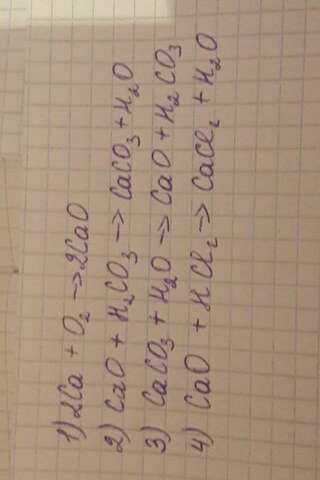 1) 2Ca + O₂ → 2CaO
2) CaO + H₂CO₃ → CaCO₃ + H₂O
3) CaCO₃ + H₂O → CaO + H₂CO₃
4) CaO + HCl₂ → CaCl₂ + H₂O